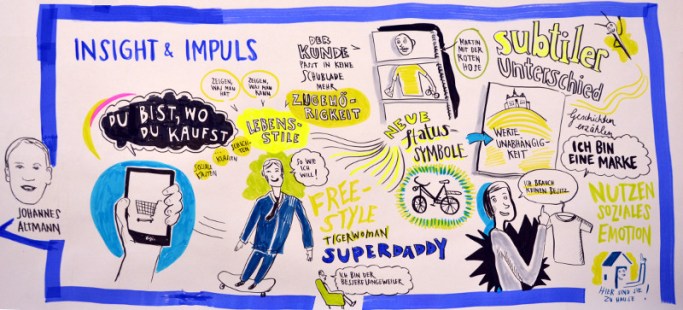 INSIGHT & IMPULS
JOHANNES
ALTMANN
DU BIST, WO
DU KAUFST
ZEIGEN,
WAS MAN
HAT
ZEIGEN,
WAS MAN
KANN
SCHICH-
TEN
KLASSEN
SOZIALE
KASTEN
LEBENS-
STILE
DER
KUNDE
PASST IN KEINE
SCHUBLADE
MEHR
ZUGEHÖ-
RIGKEIT
SO WIE
ICH
WILL!
FREE-
STYLE
TIGERWOMAN
SUPERDADDY
ICH BIN DER
BESSERE UNGEWEILER
MARTIN
MIT DER
ROTEN
HOSE
NEUE
Status-
SYMBOLE
subtiler
Unterschied
WERTE
UNABHÄNGIG-
KEIT
Geschichten
erzählen
ICH BIN
EINE MARKE
ICH BRAUCH
KEINEN
NUTZEN
SOZIALES
EMOTION
HIER UND SIE!
ZU HAUSE!